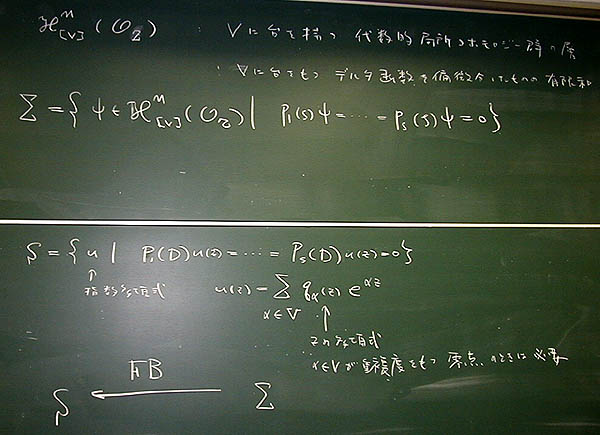 ℋⁿ_[V](𝒪_Z) : Vに台を持つ 代数的局所コホモロジー群の層
: Vに台をもつ デルタ函数を偏微分したものの有限和
Σ = { ψ ∈ ℋⁿ_[V](𝒪_Z) | P₁(ζ)ψ = ⋯ = Pₛ(ζ)ψ = 0 }
S = { u | P₁(D)u(z) = ⋯ = Pₛ(D)u(z) = 0 }
↑
指数多項式
u(z) = Σ_{α∈V} q_α(z) e^{αz}
↑
zの多項式
α∈Vが重複度をもつ 零点のときは必要
FB
S ← Σ